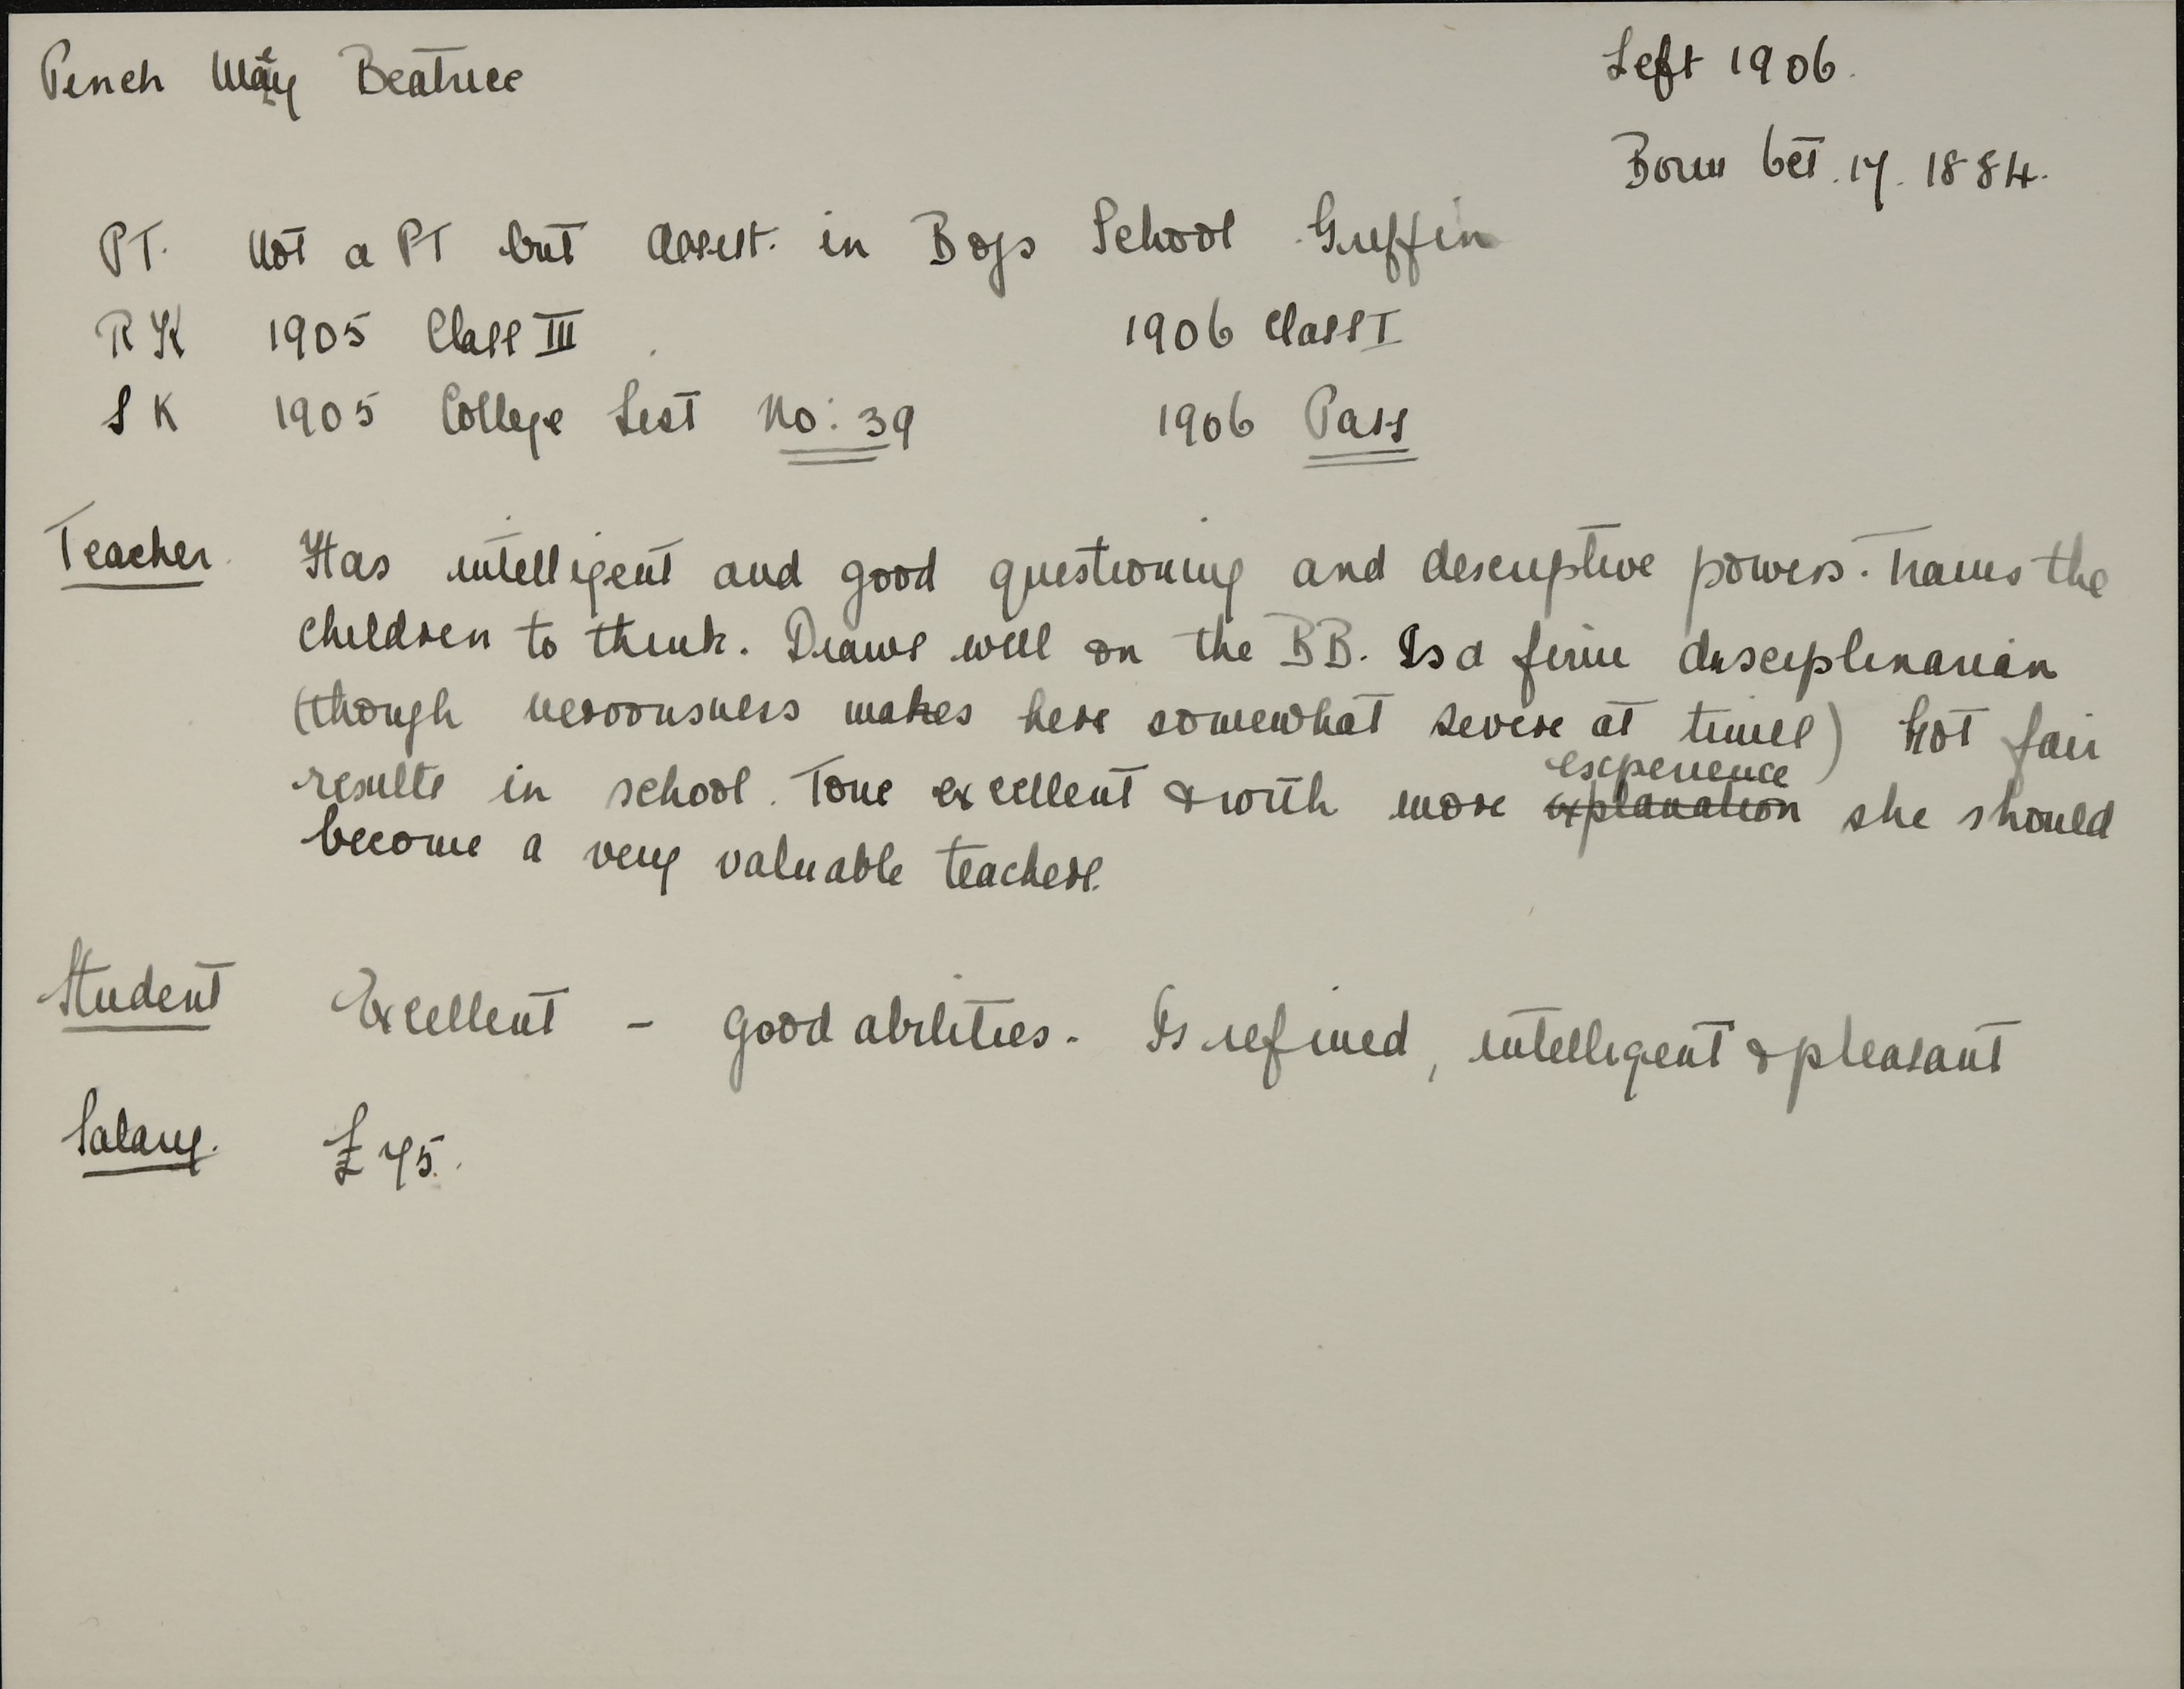 Pench May Beatrice
Left 1906.
Born Oct. 17. 1884.
PT. Not a PT but Assist. in Boys School Griffin
RK 1905 Class III 1906 Class I
SK 1905 College List No: 39 1906 Pass
Teacher. Has intelligent and good questioning and descriptive powers. Trains the
children to think. Draws well on the BB. Is a firm disciplinarian
(though nervousness makes her somewhat severe at times) Got fair
results in school. Tone excellent & with more explanation experience she should
become a very valuable teacher.
Student Excellent - good abilities. Is refined, intelligent & pleasant
Salary. £75.